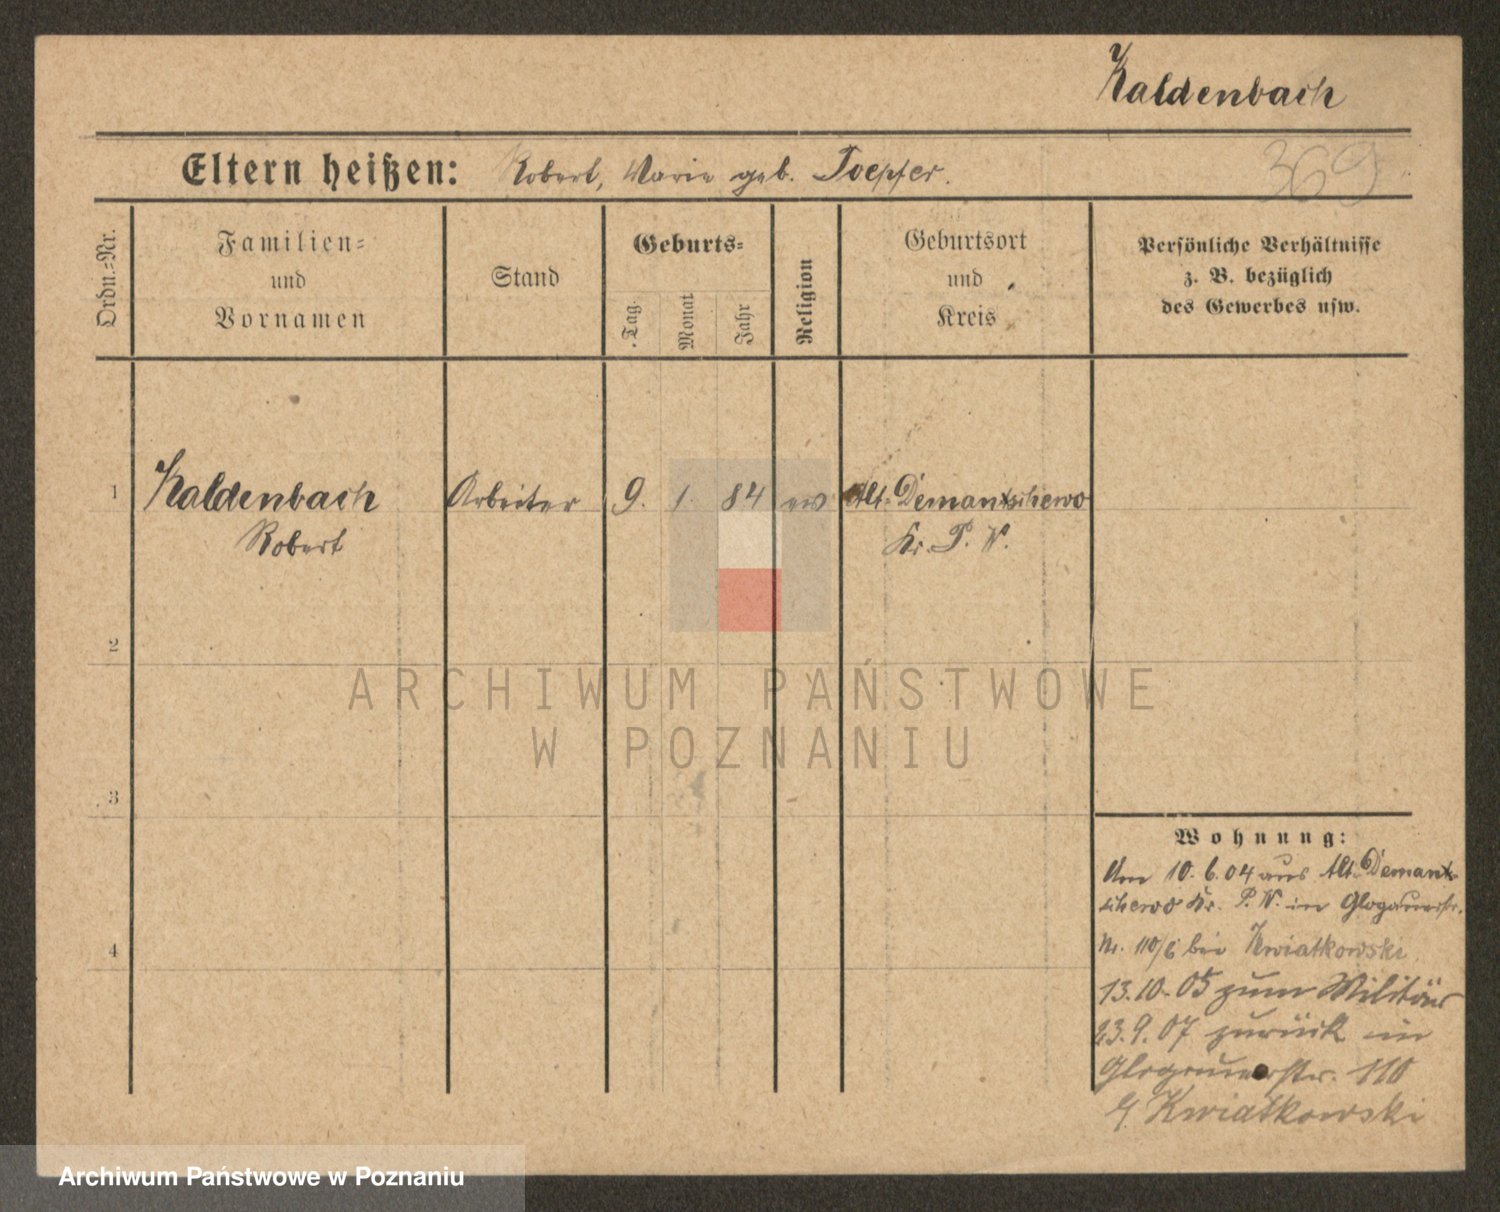 Kaldenbach
Eltern heißen: Robert, Marie geb. Toepfer.
369
Ordn.=Nr.
Familien=
und
Vornamen
Stand
Geburts=
Tag.
Monat
Jahr
Religion
Geburtsort
und
Kreis
Persönliche Verhältnisse
z. B. bezüglich
des Gewerbes usw.
1 Kaldenbach Arbeiter 9. 1. 84 ev Alt-Demantschewo
Robert Kr. P. W.
2
ARCHIWUM PAŃSTWOWE
W POZNANIU
3
Wohnung:
Am 10.6.04 aus Alt-Demant-
schewo Kr. P. W. in Glogauerstr.
4
Nr. 110/6 bei Kwiatkowski.
13.10.05 zum Militär
23.9.07 zurück in
Glogauerstr. 110
Kwiatkowski
Archiwum Państwowe w Poznaniu